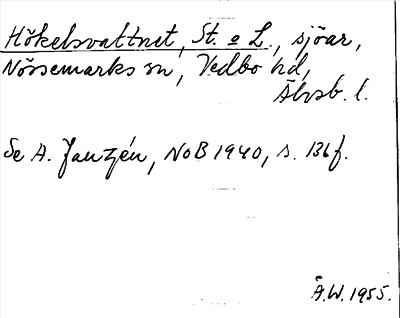 Hökelsvattnet, St. o L., sjöar,
Nössemarks sn, Vedbo hd,
Älvsb. l.
Se A. Janzén, NoB 1940, s. 136 f.
Å.W. 1955.